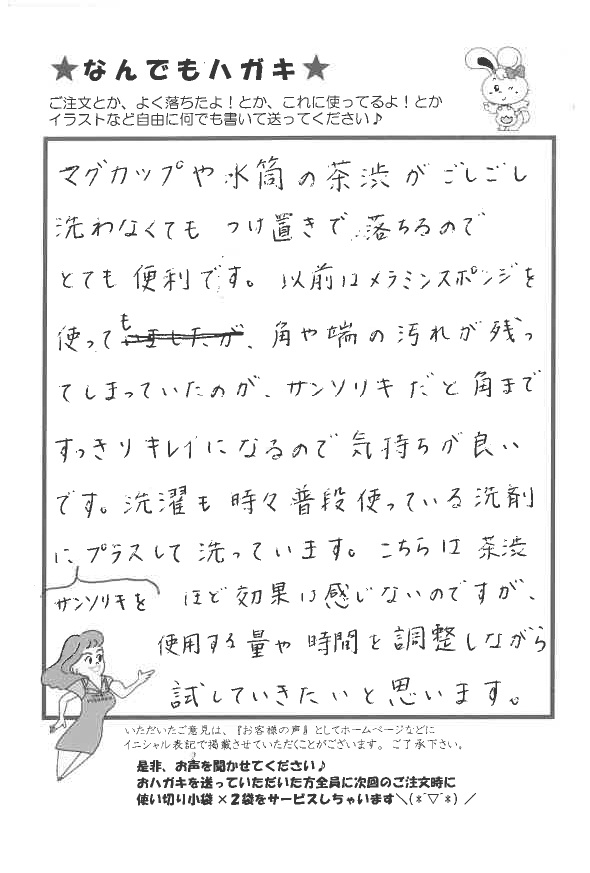 ★なんでもハガキ★
ご注文とか、よく落ちたよ！とか、これに使ってるよ！とか
イラストなど自由に何でも書いて送ってください♪
マグカップや水筒の茶渋がごしごし
洗わなくても つけ置きで落ちるので
とても便利です。以前はメラミンスポンジを
使っても、角や端の汚れが残っ
てしまっていたのが、サンソリキだと角まで
すっきりキレイになるので気持ちが良い
です。洗濯も時々普段使っている洗剤
にプラスして洗っています。こちらは茶渋
サンソリキを ほど効果は感じないのですが、
使用する量や時間を調整しながら
試していきたいと思います。
いただいたご意見は、『お客様の声』としてホームページなどに
イニシャル表記で掲載させていただくことがございます。ご了承下さい。
是非、お声を聞かせてください♪
おハガキを送っていただいた方全員に次回のご注文時に
使い切り小袋×2袋をサービスしちゃいます＼(*´▽`*)／